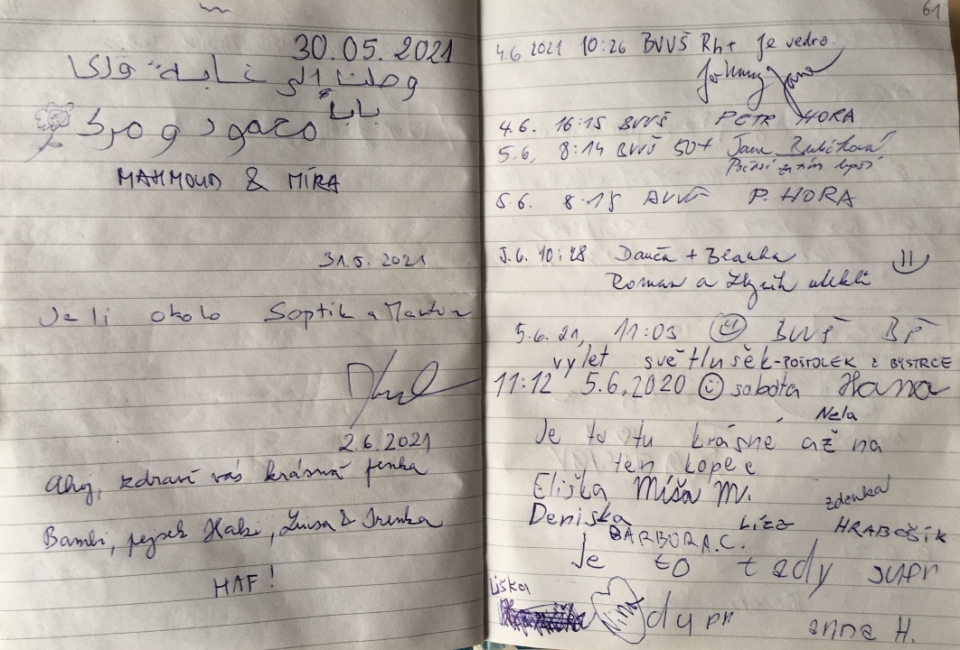 30.05.2021
وصلنا الى غابة
بابا
محمود و
MAHMOUD & MÍRA
31.5.2021
Jeli okolo Soptík a
2.6.2021
Ahoj, zdraví vás krásná fenka
Bambi, pejsek Haki, & Irenka
HAF!
61
4.6 2021 10:26 BVVŠ Rh+ Je vedro.
4.6. 16:15 BVVŠ PETR HORA
5.6. 8:14 BVVŠ 50+ Jana
5.6. 8:15 BVVŠ P. HORA
5.6. 10:28 Danča + Blanka
Roman a Zbyněk utekli
5.6.21, 11:03 BVVŠ BP
výlet světlušek-POSTOLEK Z BYSTRCE
11:12 5.6.2020 sobota Hana
Nela
Je to tu krásné až na
ten kopec
Eliška Míša M. zdenka
Deniska Lízz HRABOŠÍK
BARBORA.C.
Je to tady supr
Liška
Nina dupr anna H.